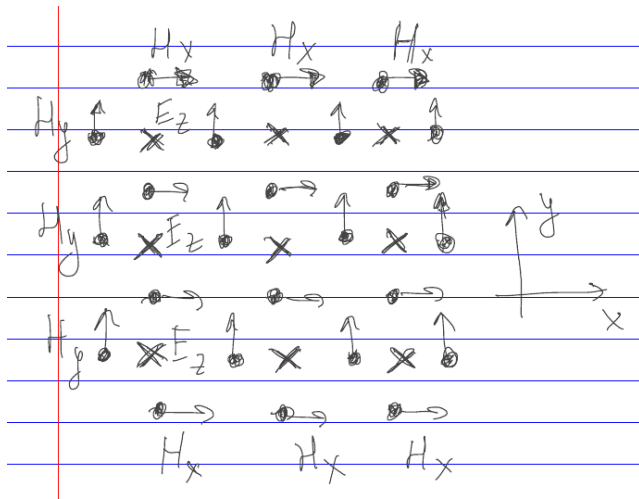 H_x H_x H_x
H_y E_z
H_y E_z
y
x
H_y E_z
H_x H_x H_x